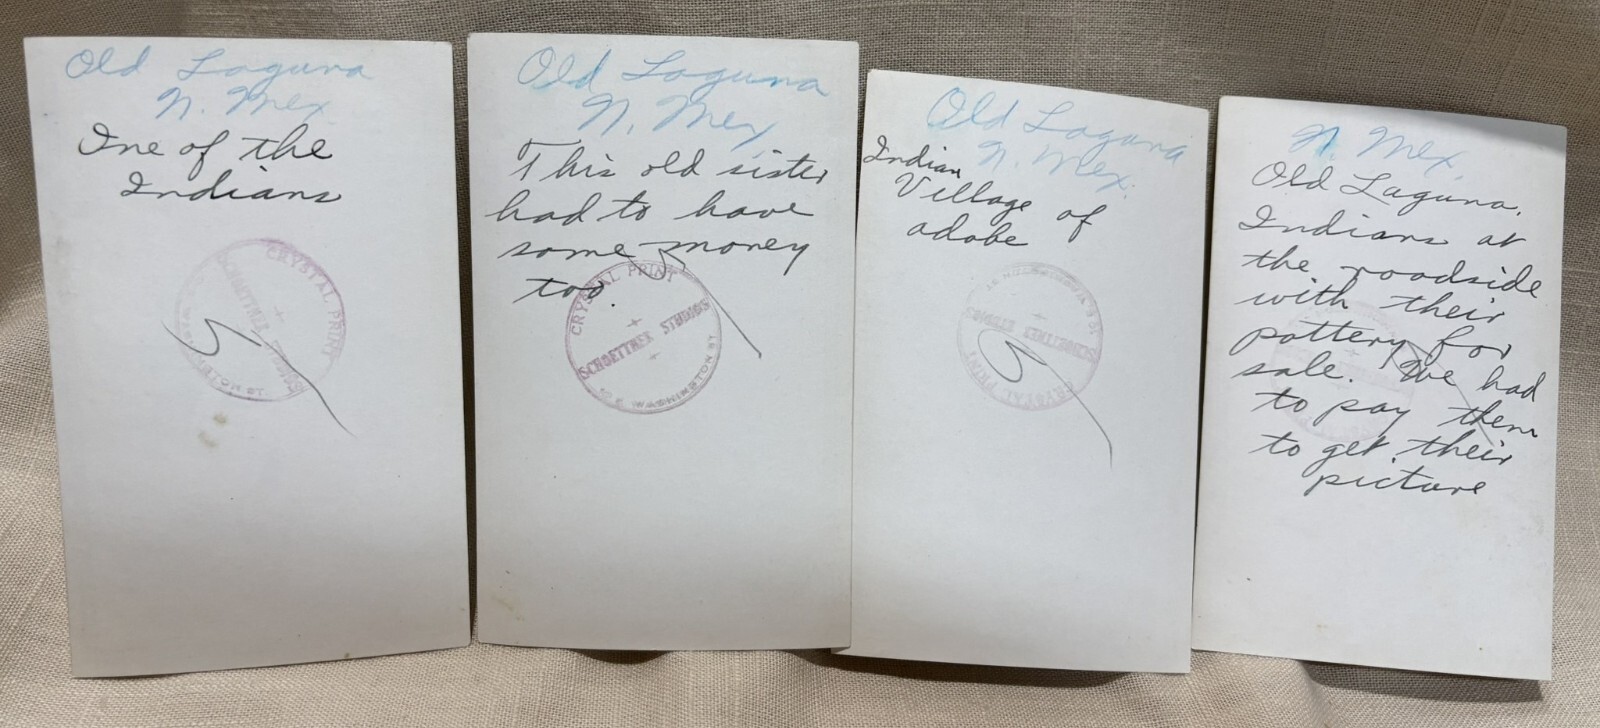 Old Laguna
N. Mex.
One of the
Indians
CRYSTAL PRINT
SCHOETTNER STUDIOS
WASHINGTON ST.
Old Laguna
N. Mex,
This old sister
had to have
some money
too.
CRYSTAL PRINT
SCHOETTNER STUDIOS
WASHINGTON ST.
Old Laguna
N. Mex.
Indian
Village of
adobe
CRYSTAL PRINT
SCHOETTNER STUDIOS
WASHINGTON ST.
N. Mex.
Old Laguna.
Indians at
the roadside
with their
pottery for
sale. We had
to pay them
to get their
picture